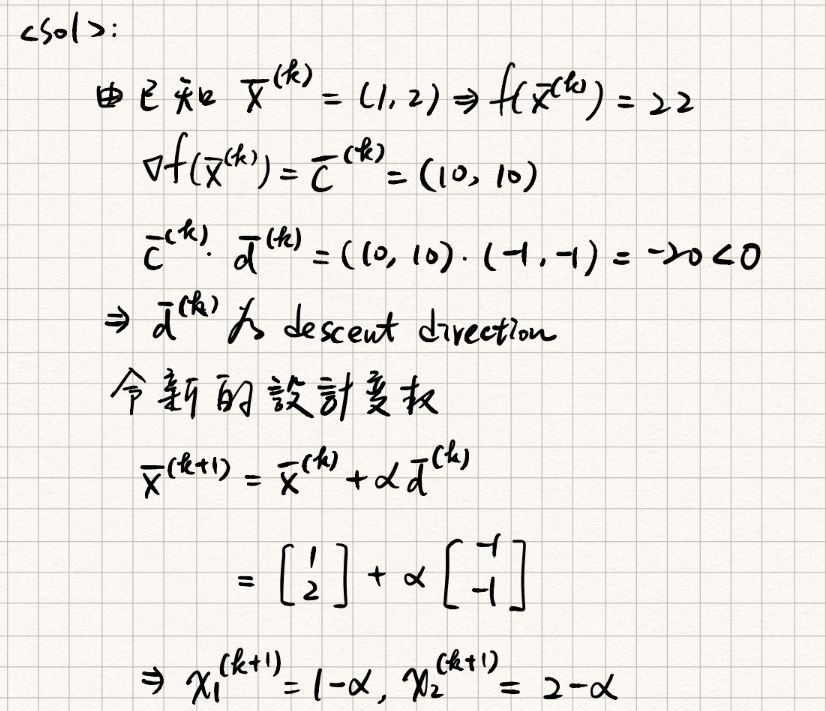 <sol>:
由已知 x̄^(k) = (1, 2) ⇒ f(x̄^(k)) = 22
∇f(x̄^(k)) = c̄^(k) = (10, 10)
c̄^(k) · d̄^(k) = (10, 10) · (-1, -1) = -20 < 0
⇒ d̄^(k) 為 descent direction
令新的設計變數
x̄^(k+1) = x̄^(k) + α d̄^(k)
= [1 2] + α [-1 -1]
⇒ x₁^(k+1) = 1-α, x₂^(k+1) = 2-α